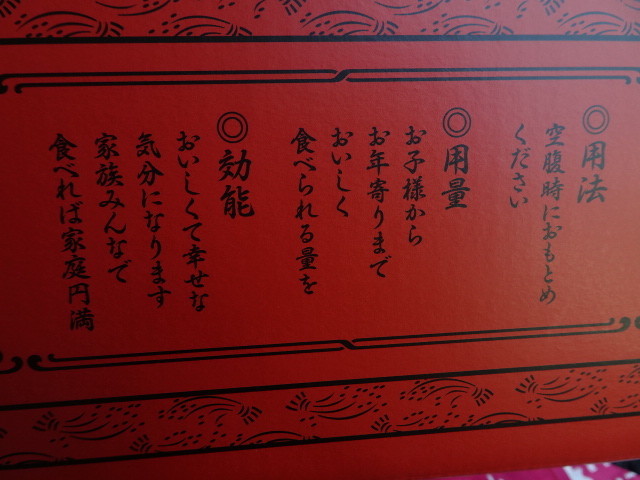 ◎用法
空腹時におもとめ
ください
◎用量
お子様から
お年寄りまで
おいしく
食べられる量を
◎効能
おいしくて幸せな
気分になります
家族みんなで
食べれば家庭円満